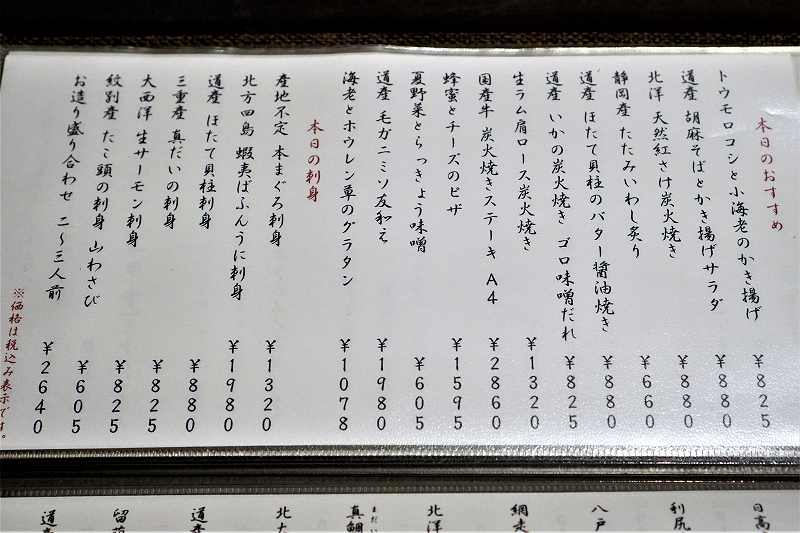 本日のおすすめ
トウモロコシと小海老のかき揚げ ¥825
道産 胡麻そばとかき揚げサラダ ¥880
北洋 天然紅さけ炭火焼き ¥880
静岡産 たたみいわし炙り ¥660
道産 ほたて貝柱のバター醤油焼き ¥880
道産 いかの炭火焼き ゴロ味噌だれ ¥825
生ラム肩ロース炭火焼き ¥1320
国産牛 炭火焼きステーキ A4 ¥2860
蜂蜜とチーズのピザ ¥1595
夏野菜とらっきょう味噌 ¥605
道産 毛ガニミソ友和え ¥1980
海老とホウレン草のグラタン ¥1078
本日の刺身
産地不定 本まぐろ刺身 ¥1320
北方四島 蝦夷ばふんうに刺身 ¥1980
道産 ほたて貝柱刺身 ¥880
三重産 真だいの刺身 ¥825
大西洋 生サーモン刺身 ¥825
紋別産 たこ頭の刺身 山わさび ¥605
お造り盛り合わせ 二〜三人前 ¥2640
※価格は税込み表示です。
日高
利尻
八戸
網走
北洋
真鯛
まだい
北大
道産